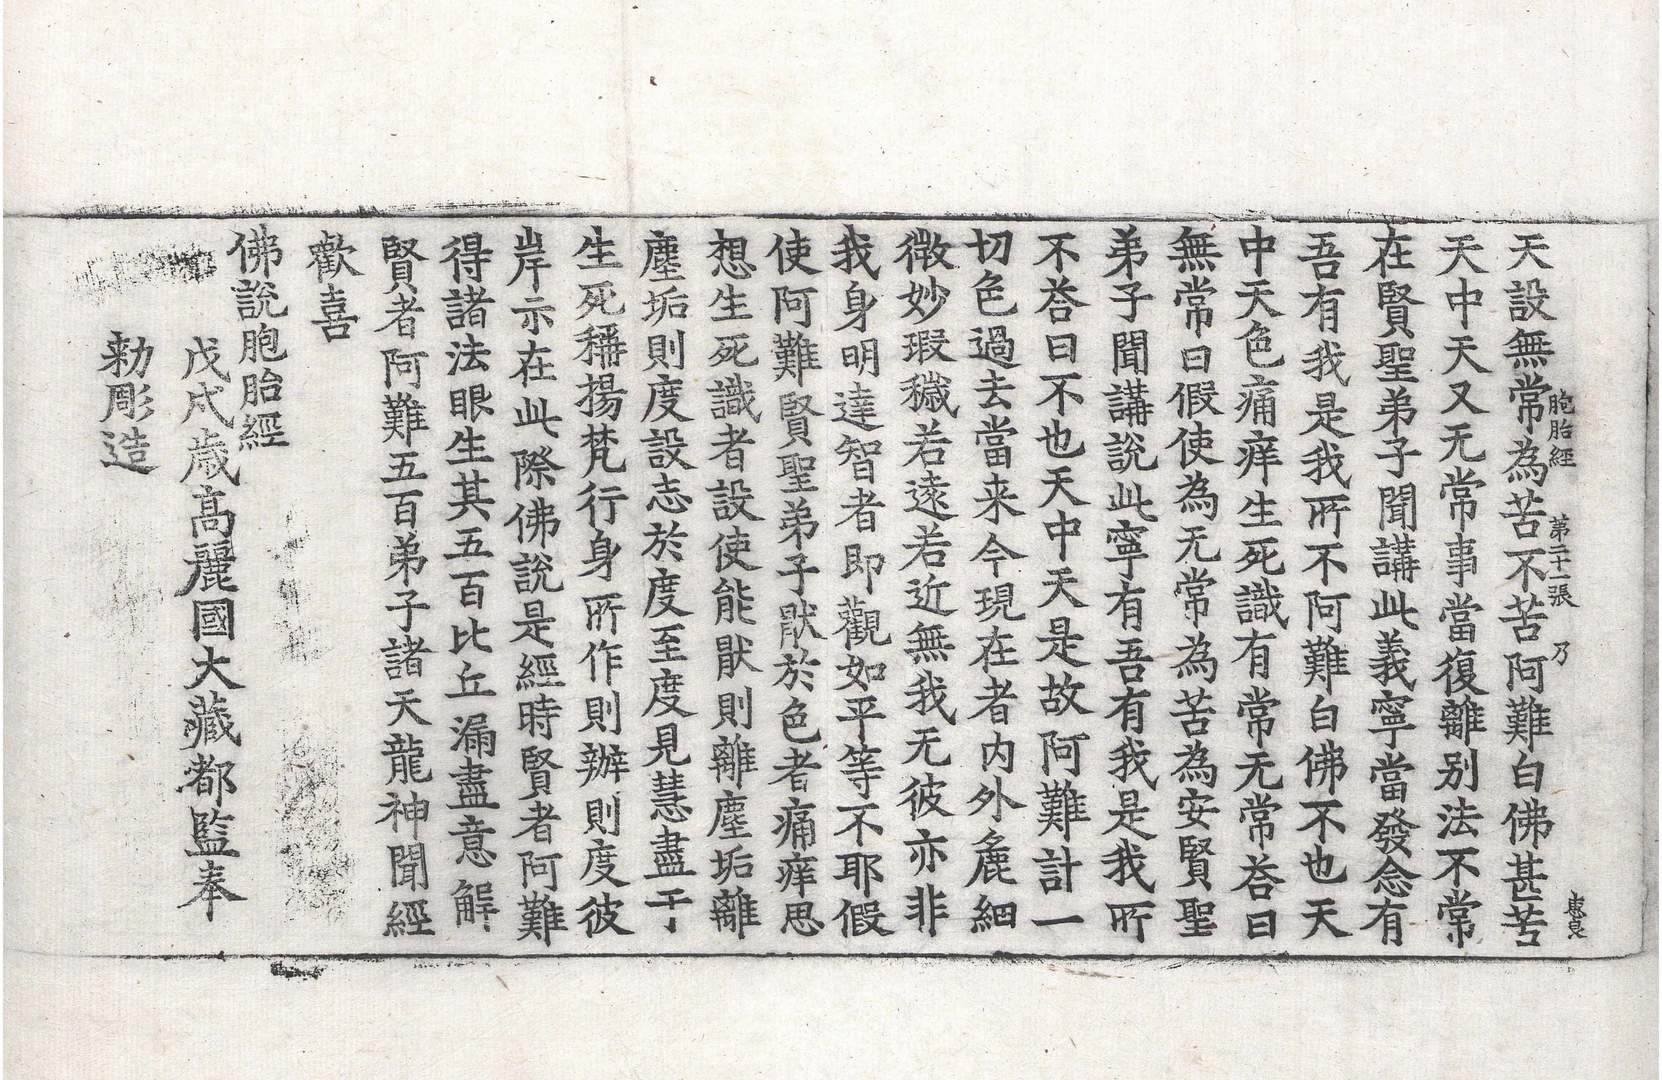 胞胎經 第二十一張 乃
天設無常為苦不苦阿難白佛甚苦
天中天又无常事當復離別法不常
在賢聖弟子聞講此義寧當發念有
吾有我是我所不阿難白佛不也天
中天色痛痒生死識有常无常荅曰
無常曰假使為无常為苦為安賢聖
弟子聞講說此寧有吾有我是我所
不荅曰不也天中天是故阿難計一
切色過去當来今現在者內外麁細
微妙瑕穢若遠若近無我无彼亦非
我身明達智者即觀如平等不耶假
使阿難賢聖弟子猒於色者痛痒思
想生死識者設使能猒則離塵垢離
塵垢則度設志於度至度見慧盡于
生死稱揚梵行身所作則辦則度彼
岸示在此際佛說是經時賢者阿難
得諸法眼生其五百比丘漏盡意解
賢者阿難五百弟子諸天龍神聞經
歡喜
佛說胞胎經
戊戌歲高麗國大藏都監奉
勅彫造